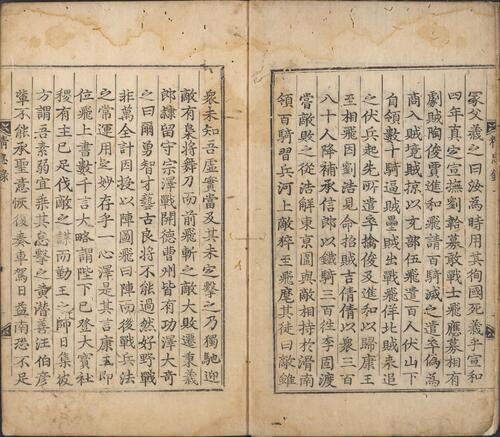 冢父義之曰汝為時用其徇國死義乎宣和
四年真定宣撫劉韐募敢戰士飛應募相有
劇賊陶俊賈進和飛請百騎滅之遣卒偽為
商入賊境賊掠以充部伍飛遣百人伏山下
自領數十騎逼賊壘賊出戰飛佯北賊來追
之伏兵起先所遣卒擒俊及進和以歸康王
至相飛因劉浩見命招賊吉倩倩以衆三百
八十人降補承信郎以鐵騎三百徃李固渡
嘗敵敗之從浩解東京圍與敵相持於滑南
領百騎習兵河上敵猝至飛麾其徒曰敵雖
衆未知吾虛實當及其未定擊之乃獨馳迎
敵有梟將舞刀而前飛斬之敵大敗遷秉義
郎隷留守宗澤戰開德曹州皆有功澤大奇
之曰爾勇智才藝古良將不能過然好野戰
非萬全計因授以陣圖飛曰陣而後戰兵法
之常運用之妙存乎一心澤是其言康王即
位飛上書數千言大略謂陛下已登大寶社
稷有主已足伐敵之謀而勤王之師日集彼
方謂吾素弱宜乘其怠擊之黃潜善汪伯彥
輩不能承聖意恢復奏車駕日益南恐不足